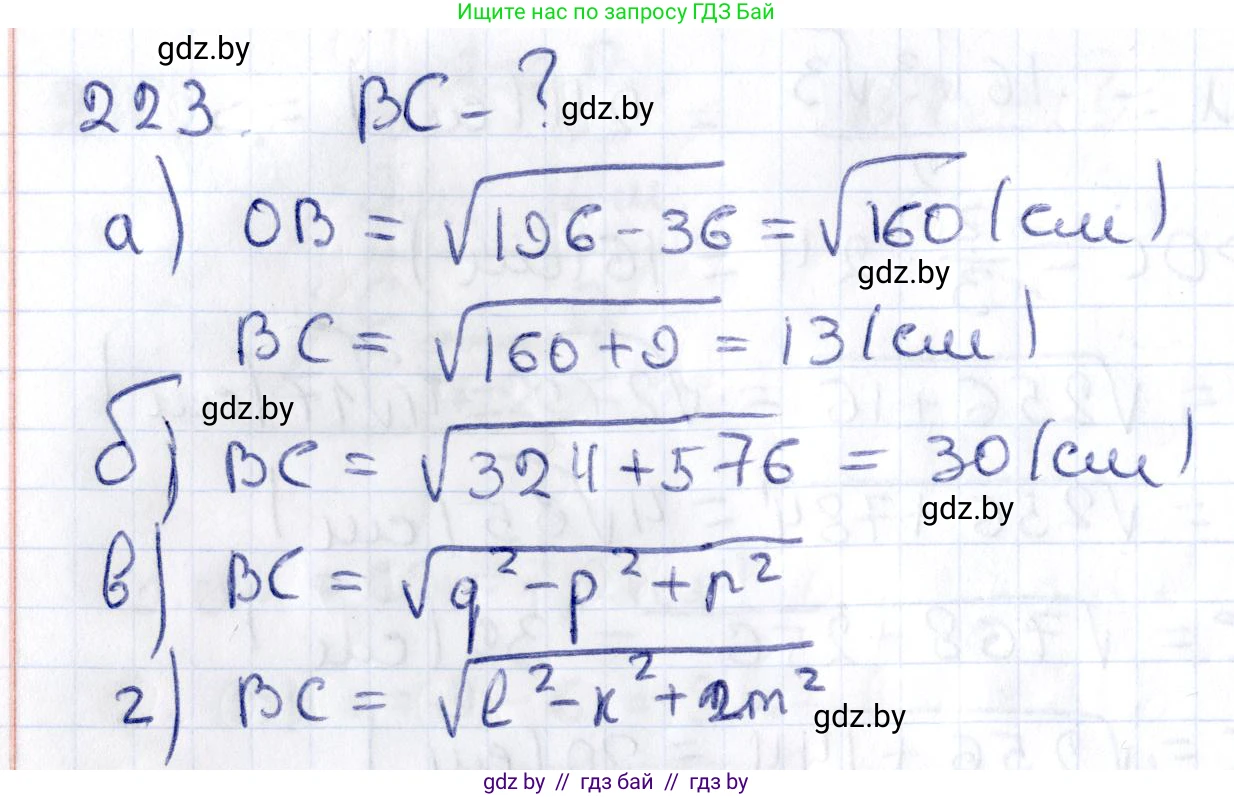 Ищите нас по запросу ГДЗ Бай
gdz.by
223. BC - ?
gdz.by
а) OB = √196-36 = √160 (см)
gdz.by
BC = √160+9 = 13 (см)
gdz.by
б) BC = √324+576 = 30 (см)
gdz.by
в) BC = √q²-p²+n²
г) BC = √l²-k²+2m²
gdz.by
gdz.by // гдз бай // гдз by